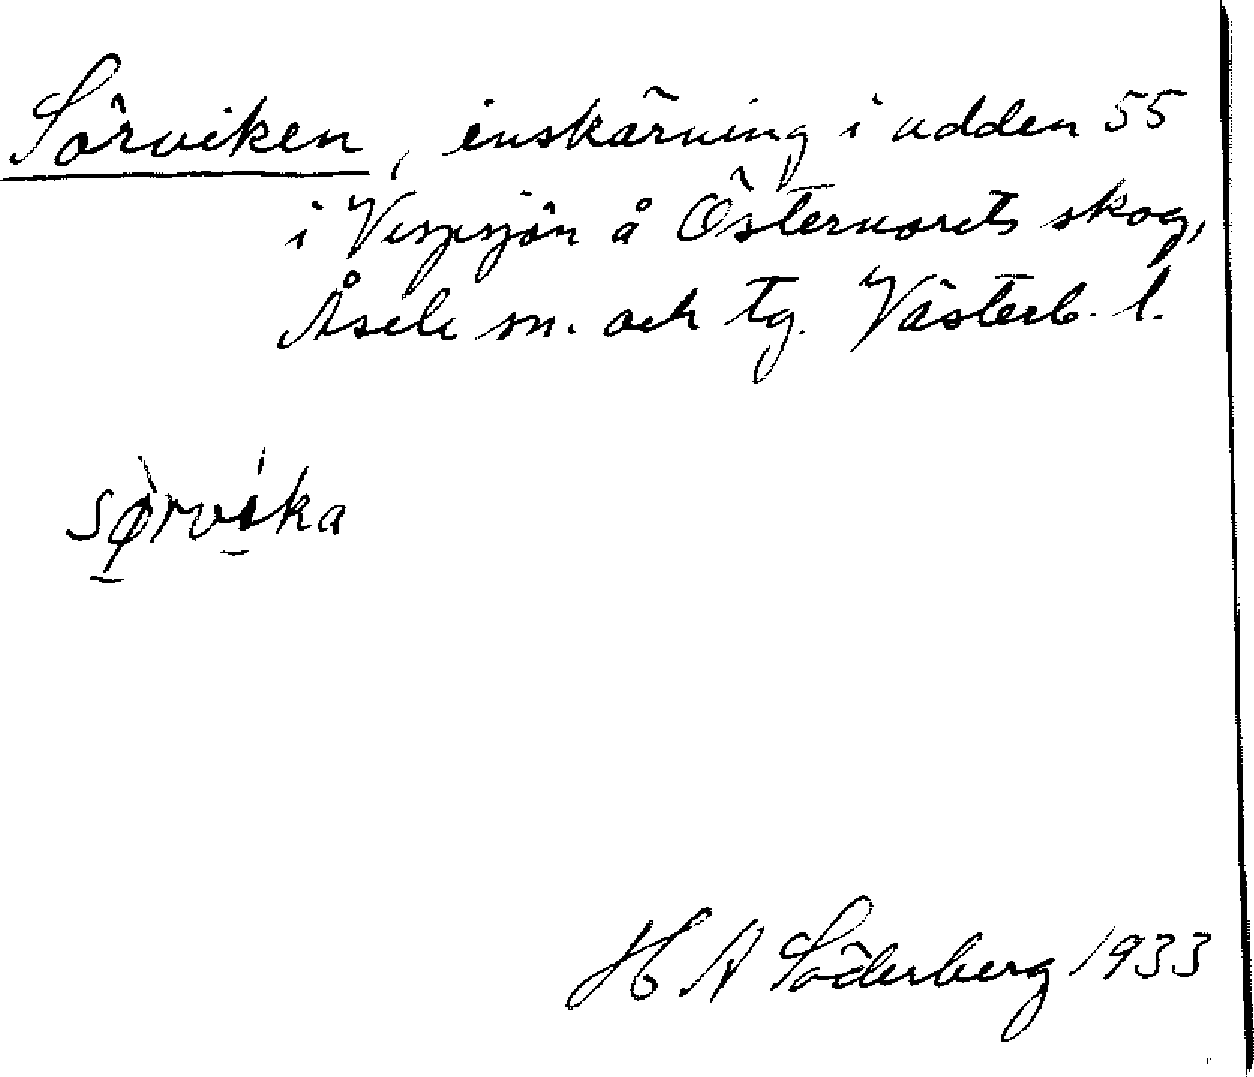 Sörviken, inskärning i udden 55
i Vispsjön å Östernorets skog,
Åsele sn. och tg. Västerb. l.
sø̠̀rvi̠ka
H A Söderberg 1933